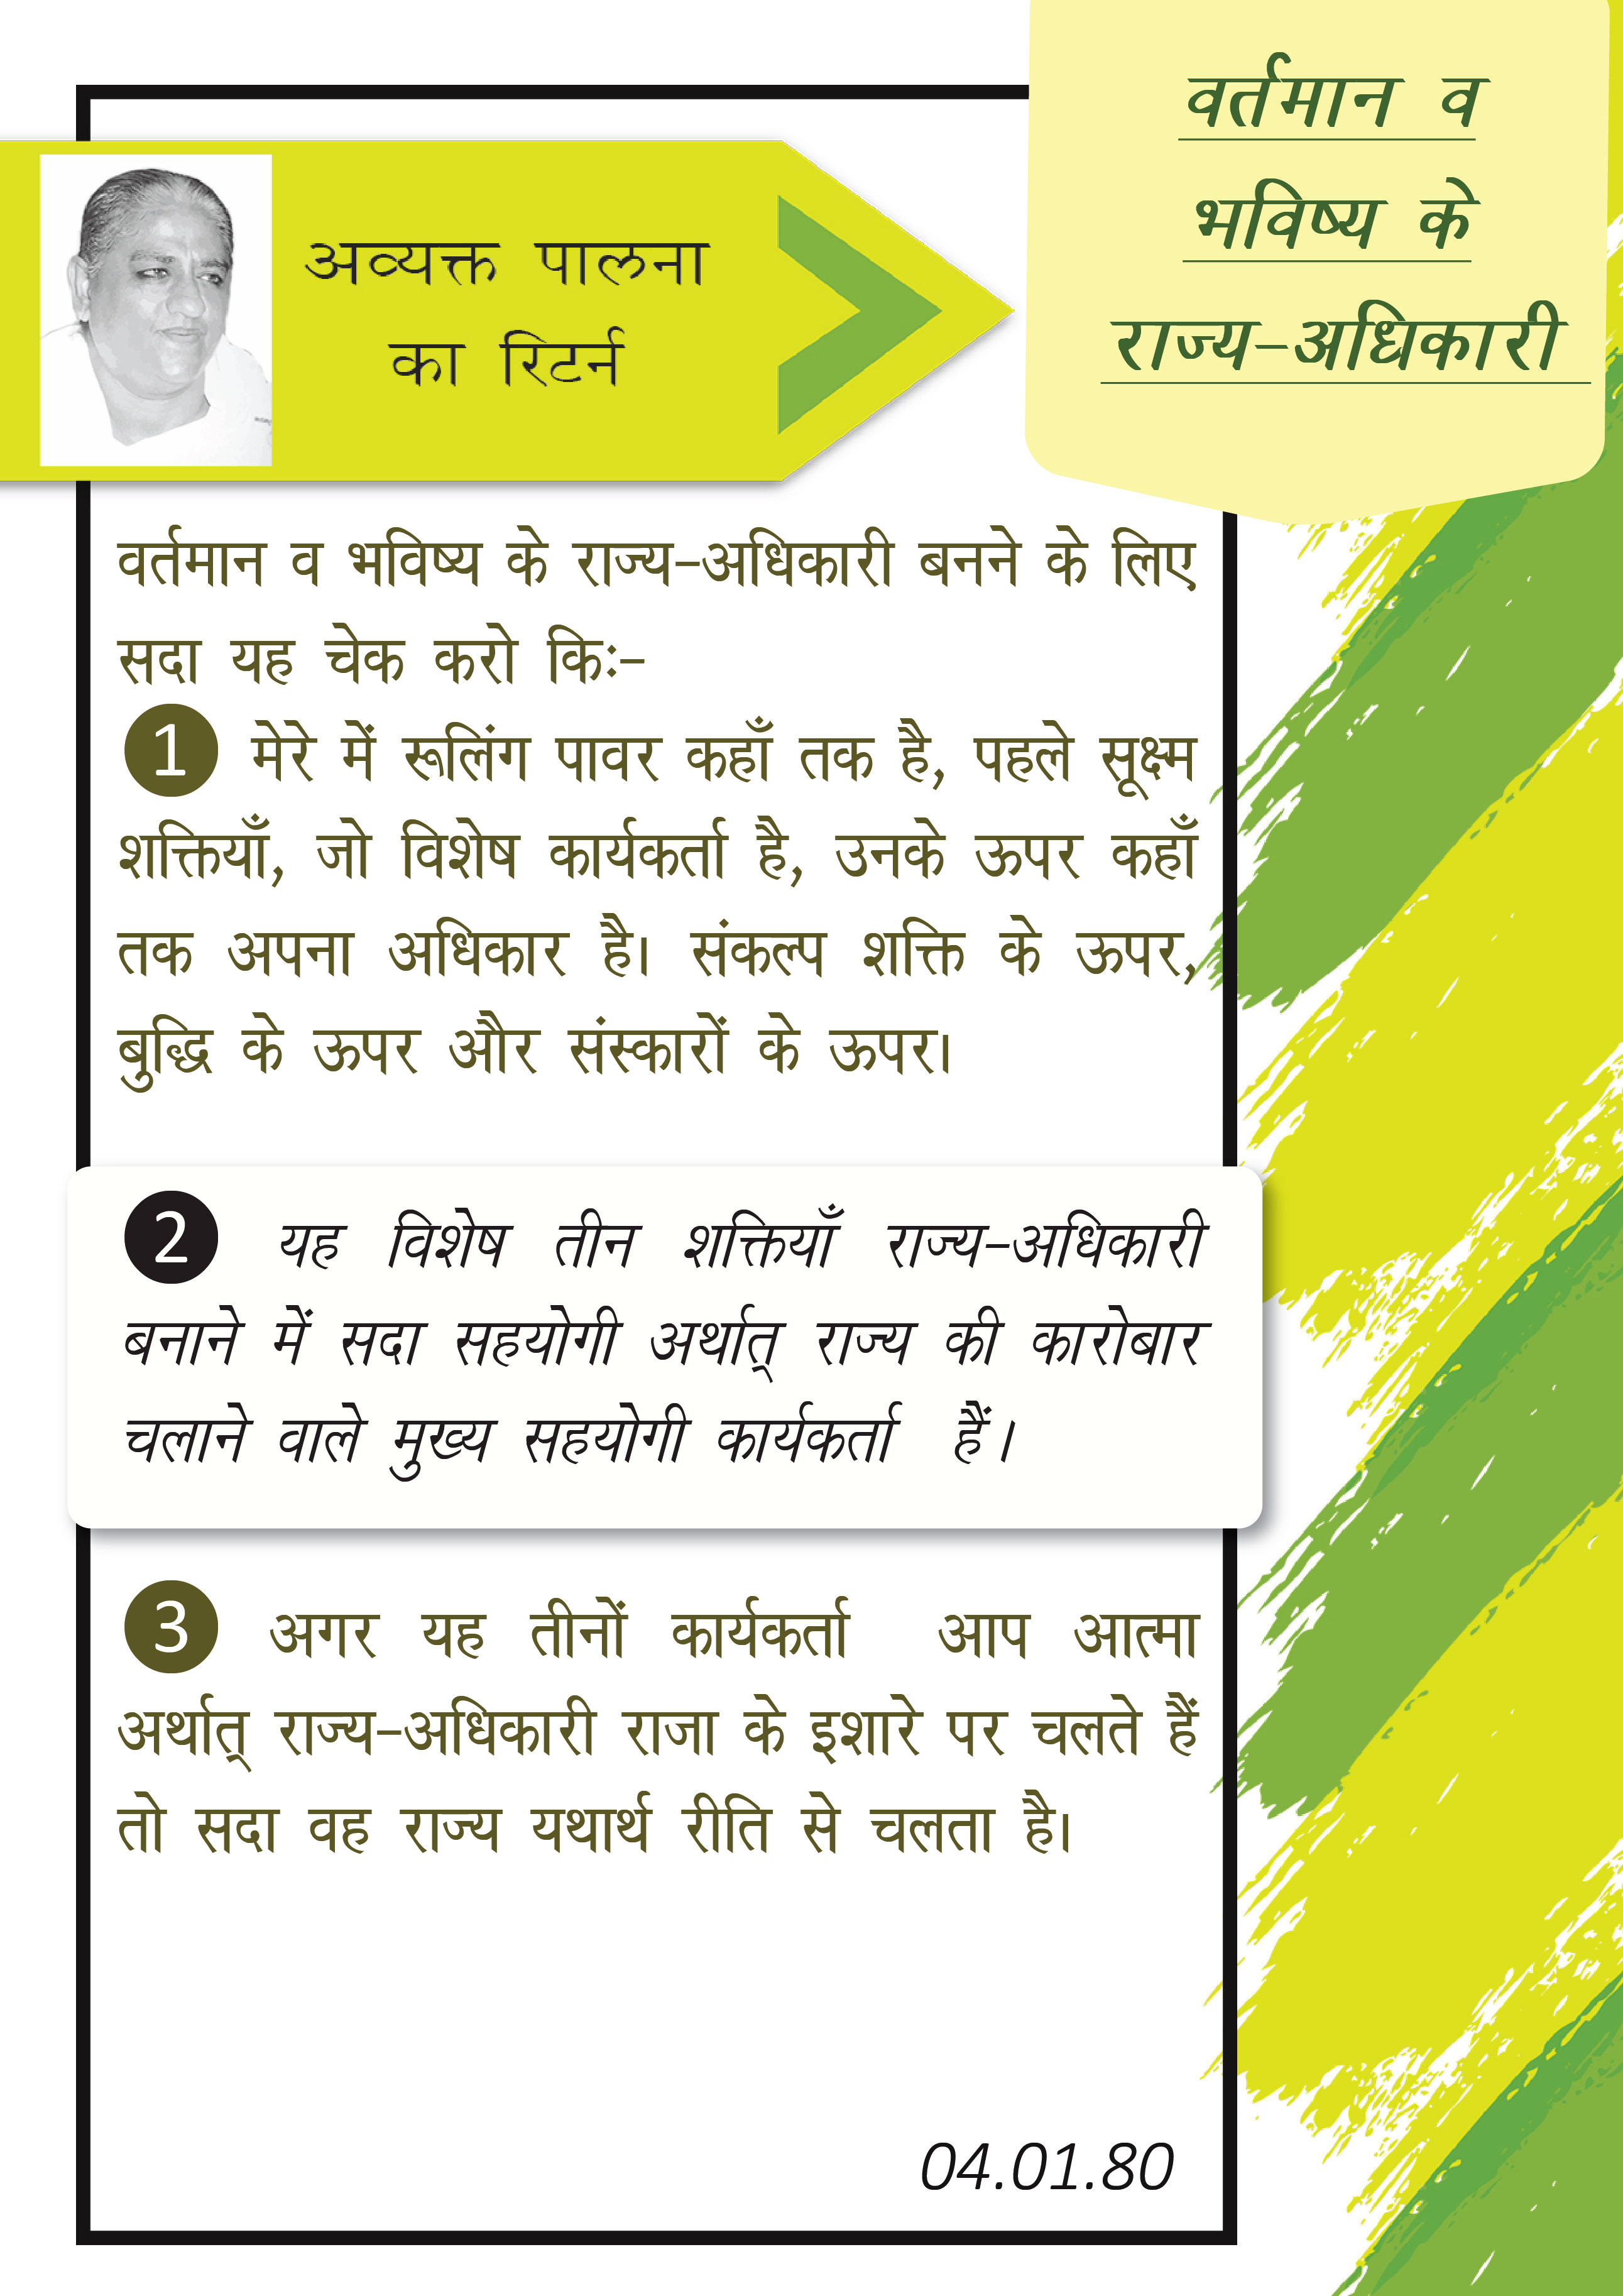 वर्तमान व
भविष्य के
राज्य-अधिकारी
अव्यक्त पालना
का रिटर्न
वर्तमान व भविष्य के राज्य-अधिकारी बनने के लिए
सदा यह चेक करो किः-
1 मेरे में रूलिंग पावर कहाँ तक है, पहले सूक्ष्म
शक्तियाँ, जो विशेष कार्यकर्ता है, उनके ऊपर कहाँ
तक अपना अधिकार है। संकल्प शक्ति के ऊपर,
बुद्धि के ऊपर और संस्कारों के ऊपर।
2 यह विशेष तीन शक्तियाँ राज्य-अधिकारी
बनाने में सदा सहयोगी अर्थात् राज्य की कारोबार
चलाने वाले मुख्य सहयोगी कार्यकर्ता हैं।
3 अगर यह तीनों कार्यकर्ता आप आत्मा
अर्थात् राज्य-अधिकारी राजा के इशारे पर चलते हैं
तो सदा वह राज्य यथार्थ रीति से चलता है।
04.01.80